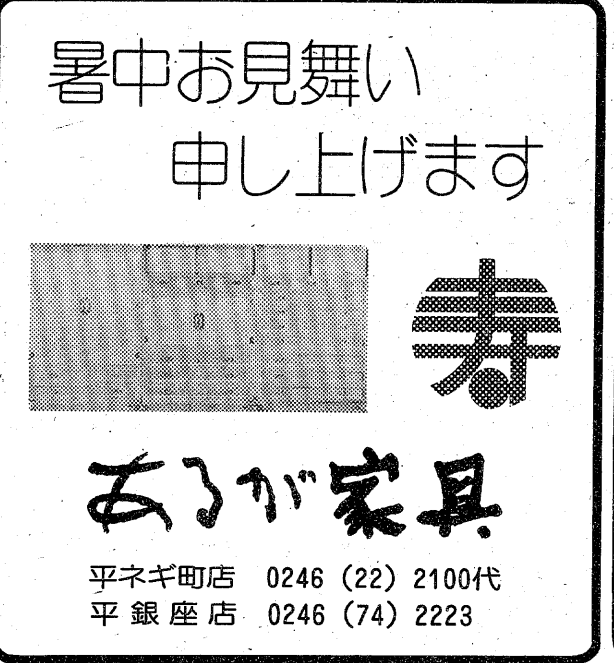 暑中お見舞い
申し上げます
寿
あるが家具
平ネギ町店 0246（22）2100代
平銀座店 0246（74）2223